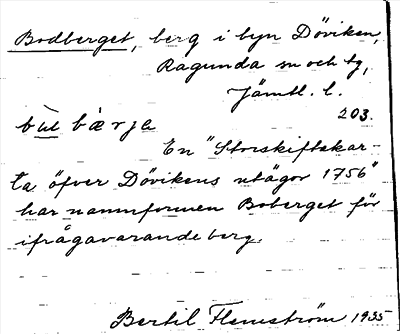 Bodberget, berg i byn Döviken,
Ragunda sn och tg,
Jämtl. l.
203.
bærja
En "Storskifteskar-
ta öfver Dövikens utägor 1756"
har namnformen Boberget för
ifrågavarande berg.
Bertil Flemström 1935